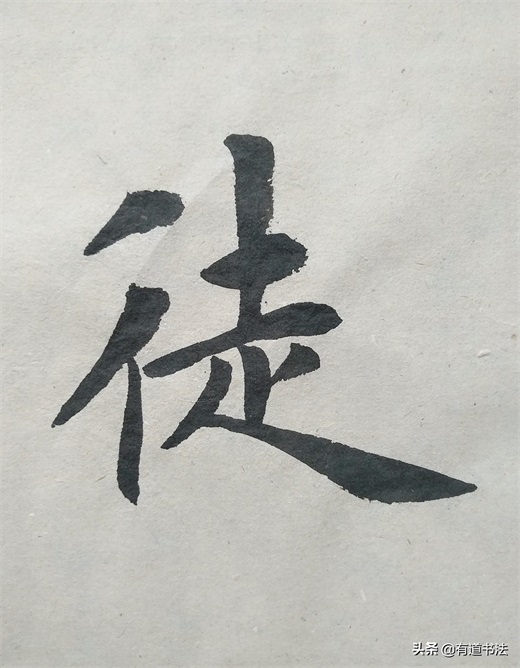 徒
头条 @有道书法